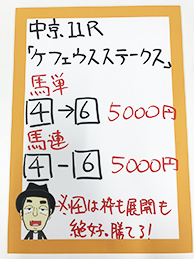 中京11R
「ケフェウスステークス」
馬単
4→6 5000円
馬連
4-6 5000円
→4は枠も展開も
絶好。勝てる!